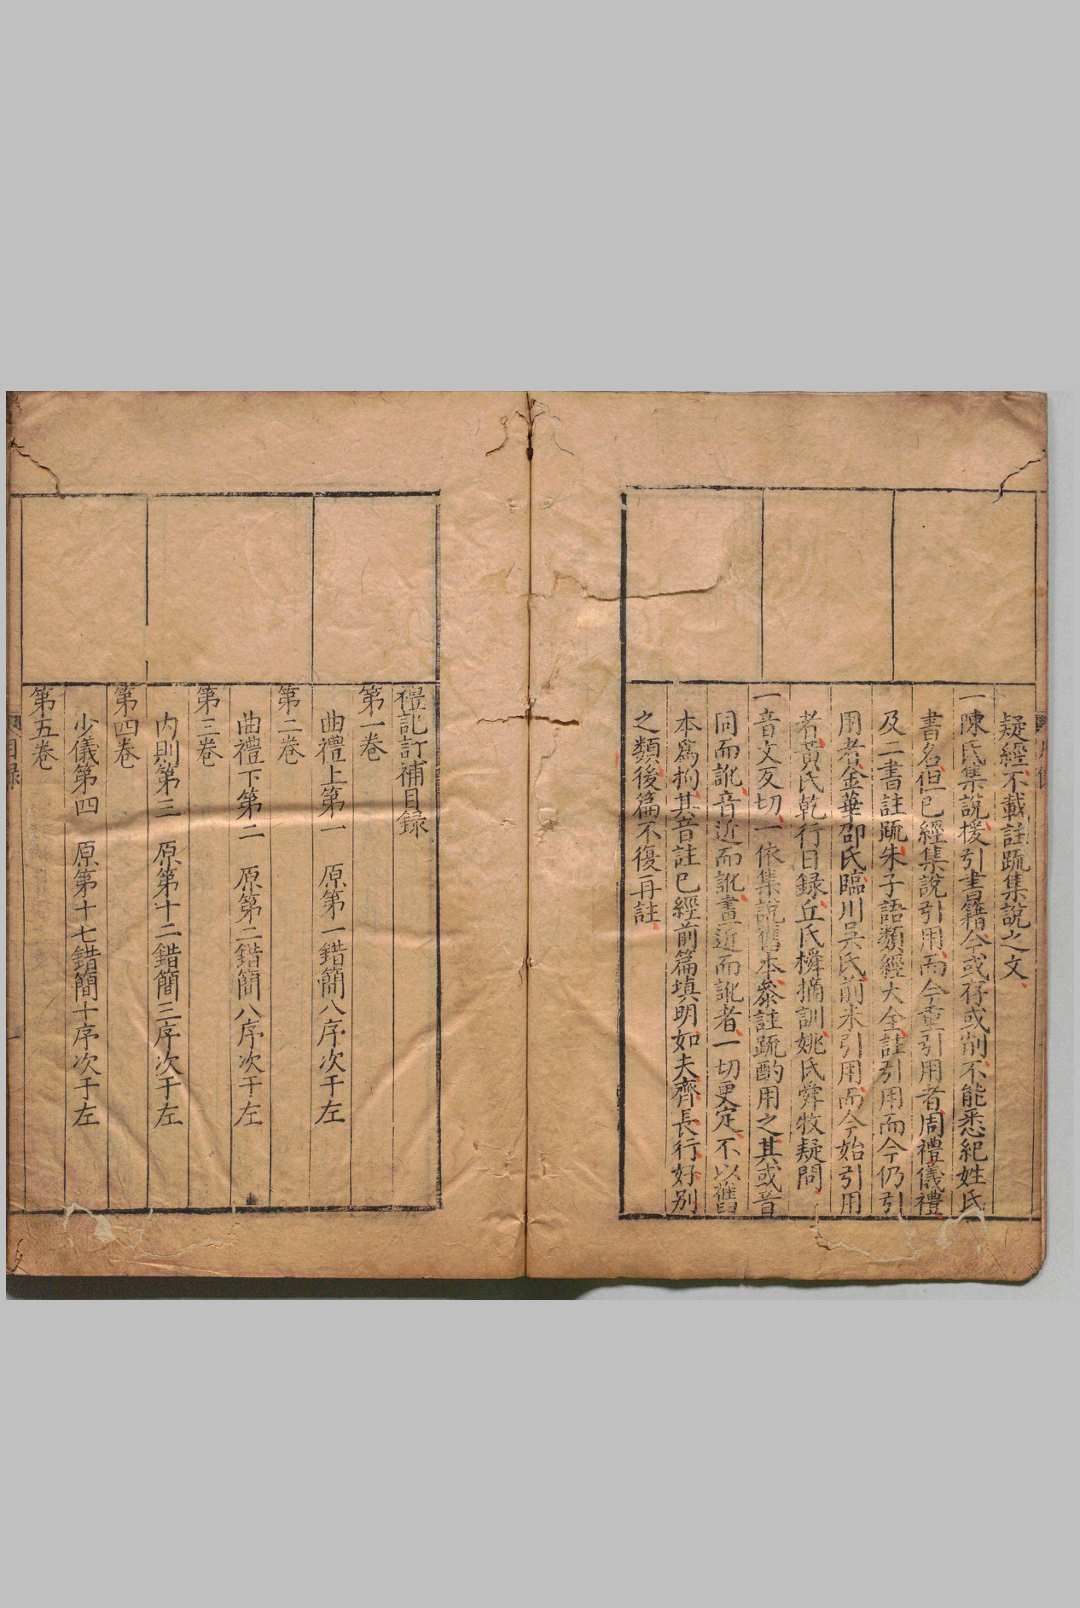 疑經不載註䟽集說之文
一陳氏集說援引書籍今或存或削不能悉紀姓氏
書名但已經集說引用而今重引用者周禮儀禮
及二書註䟽朱子語類經大全註引用而今仍引
用者金華邵氏臨川吳氏前未引用而今始引用
者黃氏乾行日録丘氏橓摘訓姚氏舜牧疑問
一音文反切一依集說舊本叅註䟽酌用之其或音
同而訛音近而訛畫近而訛者一切更定不以舊
本爲拘其音註已經前篇填明如夫齊長行好別
之類後篇不復再註
禮記訂補目録
第一卷
曲禮上第一 原第一錯簡八序次于左
第二卷
曲禮下第二 原第二錯簡八序次于左
第三卷
內則第三 原第十二錯簡三序次于左
第四卷
少儀第四 原第十七錯簡十序次于左
第五卷
目録
一